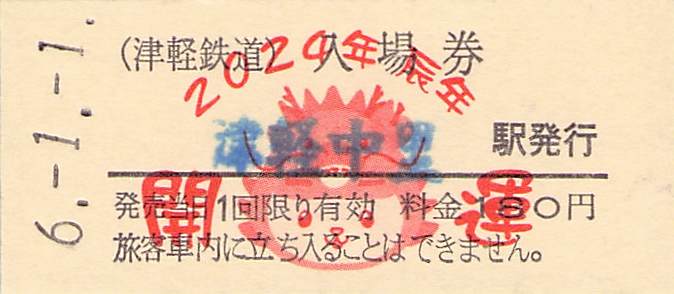 6.-1.-1.
2020年辰年
(津軽鉄道) 入場券
津軽中里 駅発行
開運
発売当日1回限り有効 料金180円
旅客車内に立ち入ることはできません。